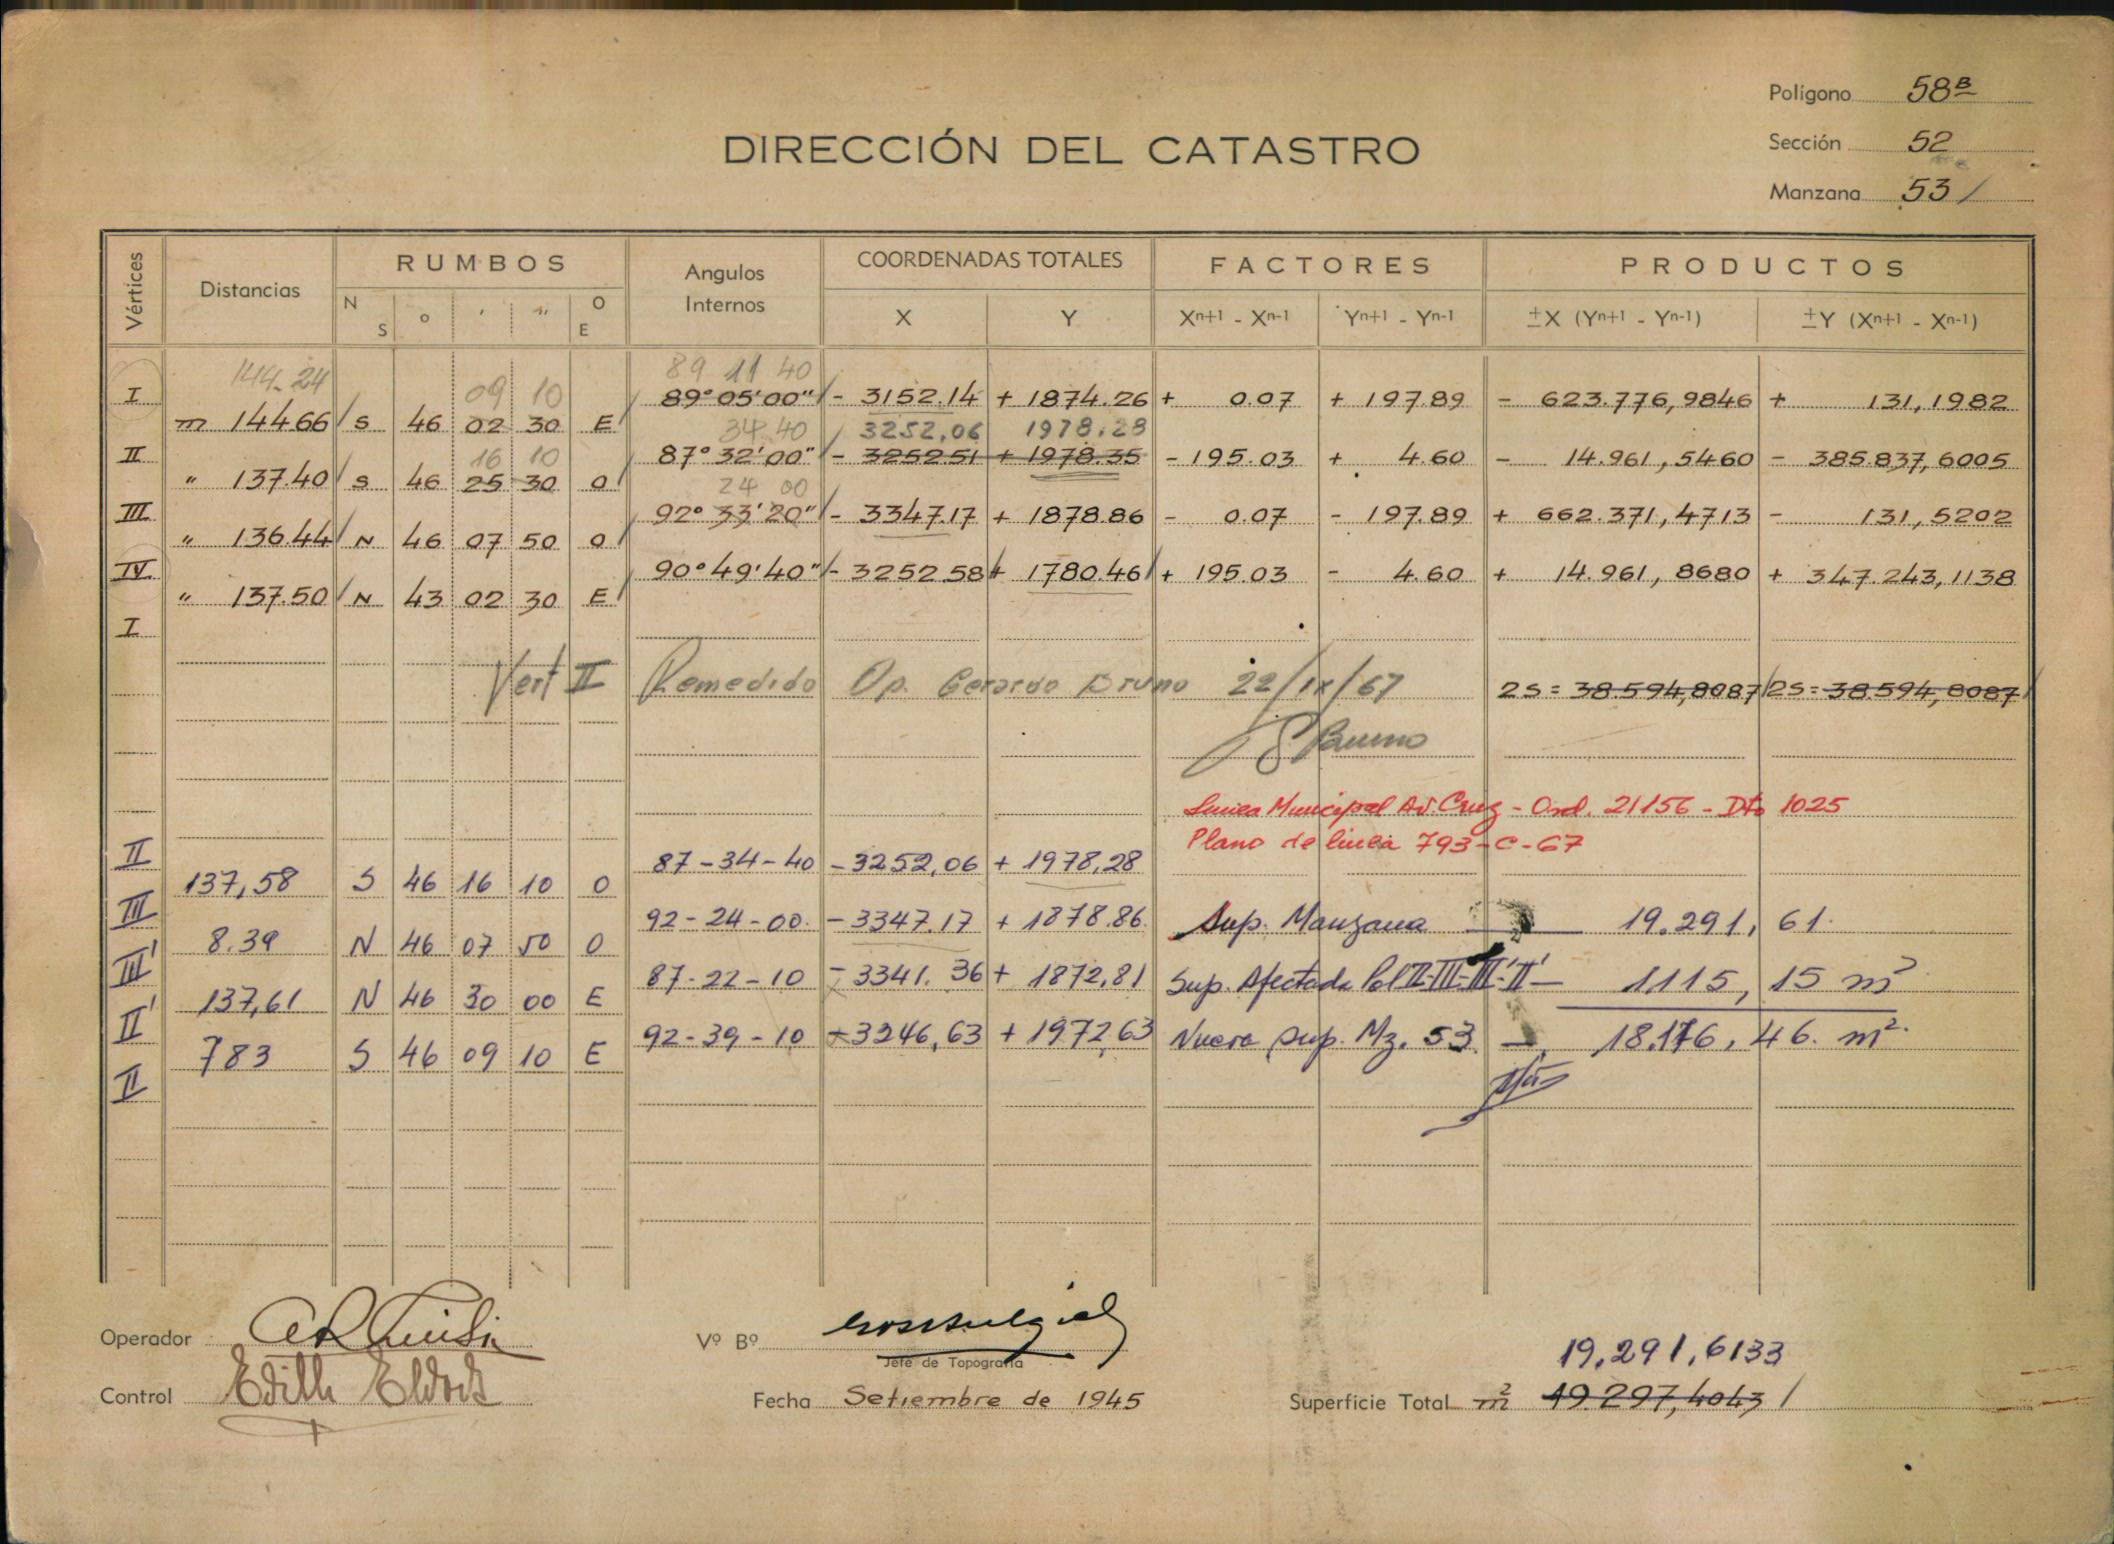 Polígono 58B
Sección 52
Manzana 53 /
DIRECCIÓN DEL CATASTRO
Vértices Distancias RUMBOS Angulos Internos COORDENADAS TOTALES FACTORES PRODUCTOS
N S ° ' " O E X Y Xn+1 - Xn-1 Yn+1 - Yn-1 ±X (Yn+1 - Yn-1) ±Y (Xn+1 - Xn-1)
144.24 09 10 89 11 40
I 89°05'00" - 3152.14 + 1874.26 + 0.07 + 197.89 - 623.776,9846 + 131,1982
m 144.66 S 46 02 30 E 34 40 3252,06 1978,28
II 16 10 87°32'00" - 3252.51 + 1978.35 - 195.03 + 4.60 - 14.961,5460 - 385.837,6005
" 137.40 S 46 25 30 O 24 00
III 92°33'20" - 3347.17 + 1878.86 - 0.07 - 197.89 + 662.371,4713 - 131,5202
" 136.44 N 46 07 50 O
IV 90°49'40" - 3252.58 + 1780.46 + 195.03 - 4.60 + 14.961,8680 + 347.243,1138
" 137.50 N 43 02 30 E
I
Vert II Remedido Op. Gerardo Bruno 22/IX/67 2S = 38.594,8087 2S = 38.594,8087
Bruno
Linea Municipal Av. Cruz - Ord. 21156 - Dto 1025
Plano de linea 793-C-67
II 87-34-40 - 3252,06 + 1978,28
137,58 S 46 16 10 O
III 92-24-00 - 3347.17 + 1878.86 Sup. Manzana 19.291,61
8.39 N 46 07 50 O
III' 87-22-10 - 3341.36 + 1872,81 Sup. Afectada Pol II-III-III'-II' 1115,15 m²
137,61 N 46 30 00 E
II' 92-39-10 - 3246,63 + 1972,63 Nueva Sup. Mz. 53 18.176,46 m²
783 S 46 09 10 E
II
Operador
Vº Bº
Jefe de Topografía
19,291,6133
Control Edith
Fecha Setiembre de 1945
Superficie Total m² 19.297,4043 /